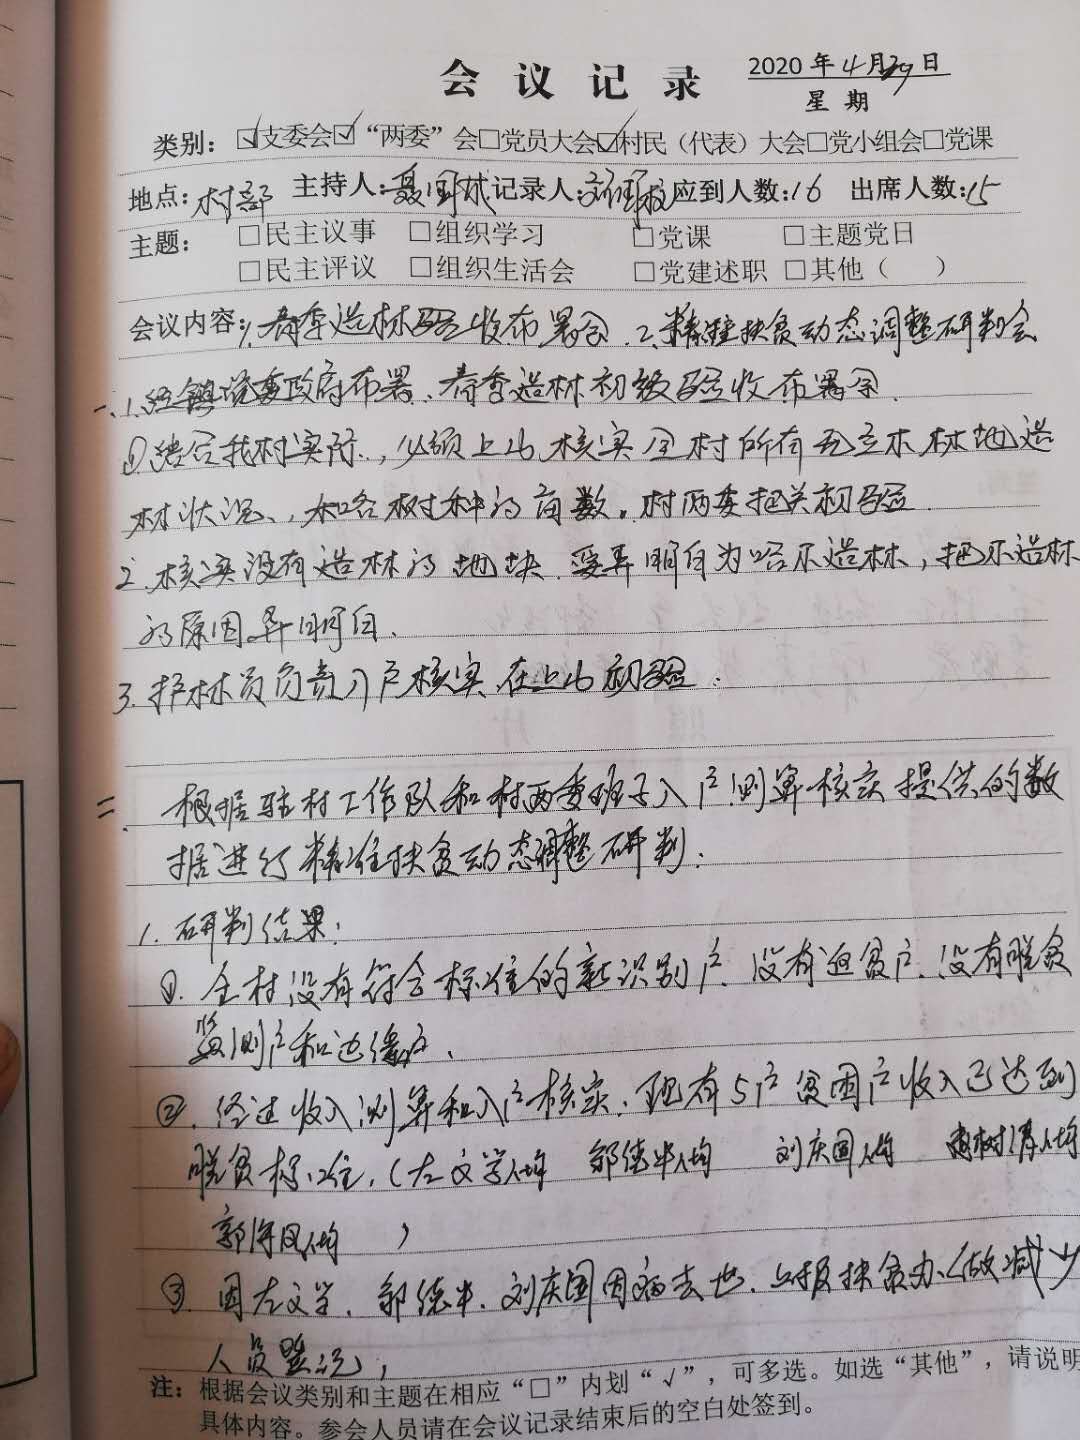 会议记录 2020年4月29日
星期
类别：☑支委会☑“两委”会□党员大会☑村民（代表）大会□党小组会□党课
地点：村部 主持人：聂国斌记录人：应到人数：16 出席人数：15
主题： □民主议事 □组织学习 □党课 □主题党日
□民主评议 □组织生活会 □党建述职 □其他（ ）
会议内容：1、春季造林验收布署会．2、精准扶贫动态调整研判会
一、1.经镇党委政府布署、春季造林初级验收布署会．
①结合我村实际．，必须上山核实全村所有无立木林地造
林状况、，和各树种的亩数。村两委把关初验．
2．核实没有造林的地块．要弄明白为啥不造林，把不造林
的原因弄明白．
3．护林员负责入户核实在上山初验．
二．根据驻村工作队和村两委班子入户测算核实提供的数
据进行精准扶贫动态调整研判：
1．研判结果：
①．全村没有符合标准的新识别户．没有返贫户．没有脱贫
监测户和边缘户．
②．经过收入测算和入户核实．现有5户贫困户收入已达到
脱贫标准．（左文学人均 邹德半人均 刘庆国人均 树清人均
郭海凤人均 ）
③．因左文学．邹德半．刘庆国因病去世．上报扶贫办（做减少
人员，
注：根据会议类别和主题在相应“□”内划“√”，可多选。如选“其他”，请说明
具体内容。参会人员请在会议记录结束后的空白处签到。